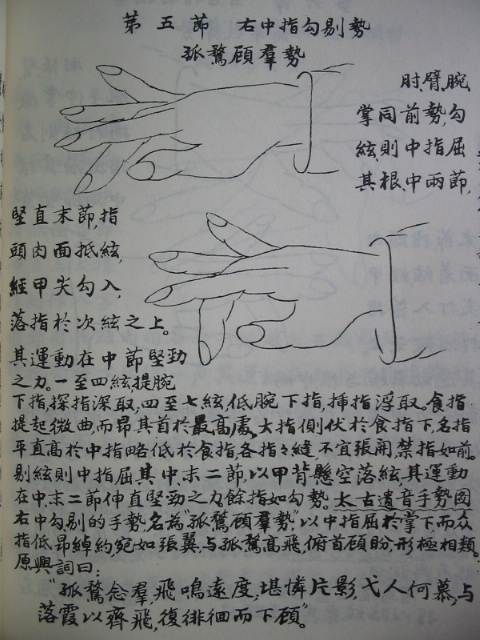 第五節 右中指勾剔勢
孤鶩顧羣勢
肘,臂,腕
掌同前勢,勾
絃則中指屈
其根,中兩節,
堅直末節,指
頭肉面抵絃,
經甲尖勾入,
落指於次絃之上。
其運動在中節堅勁
之力。一至四絃,提腕
下指,探指深取,四至七絃,低腕下指,揷指浮取。食指
提起微曲,而昂其首於最高處,大指側伏於食指下,名指
平直高於中指略低於食指,各指々縫,不宜張開,禁指如前。
剔絃則中指屈其中,末二節,以甲背懸空落絃,其運動
在中,末二節伸直堅勁之力,餘指如勾勢。太古遺音手勢圖
右中勾剔的手勢,名為"孤鶩顧羣勢"以中指屈於掌下而众
指低昂綽約,宛如張翼,与孤鶩高飛,俯首顧盼,形極相類。
原興詞曰:
"孤鶩念羣,飛鳴遠度,堪憐片影,弋人何慕,与
落霞以齊飛,復徘徊而下顧。"